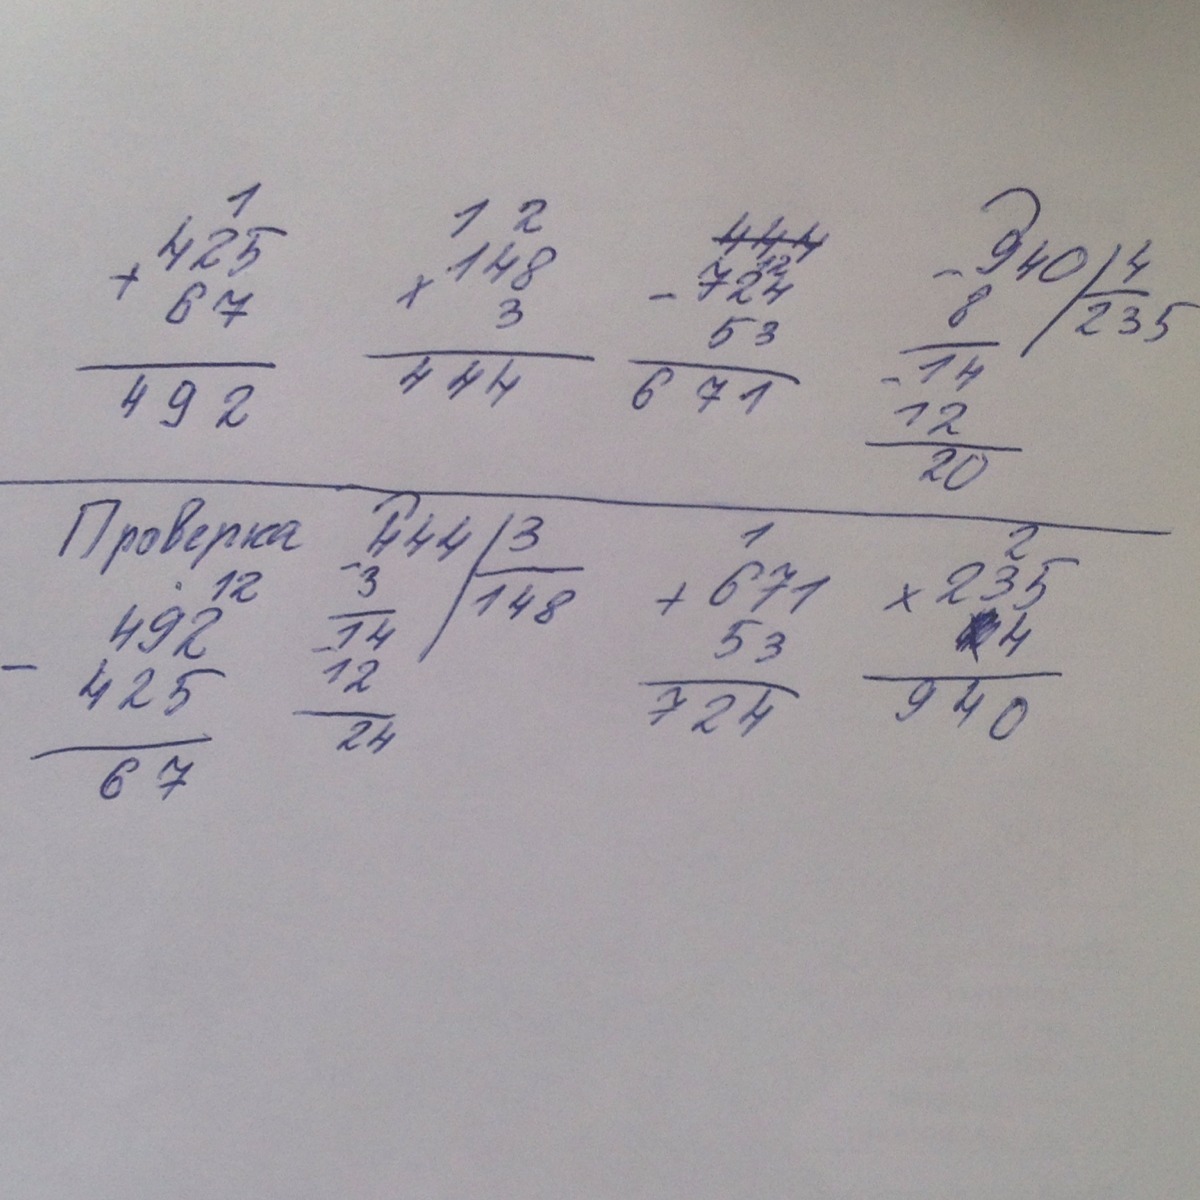 1
425
+
67
492
1 2
148
×
3
444
444
12
724
-
53
671
940 | 4
-
8
235
-14
12
20
Проверка
12
492
-
425
67
444 | 3
-3
148
-14
12
24
1
+ 671
53
724
2
× 235
4
940